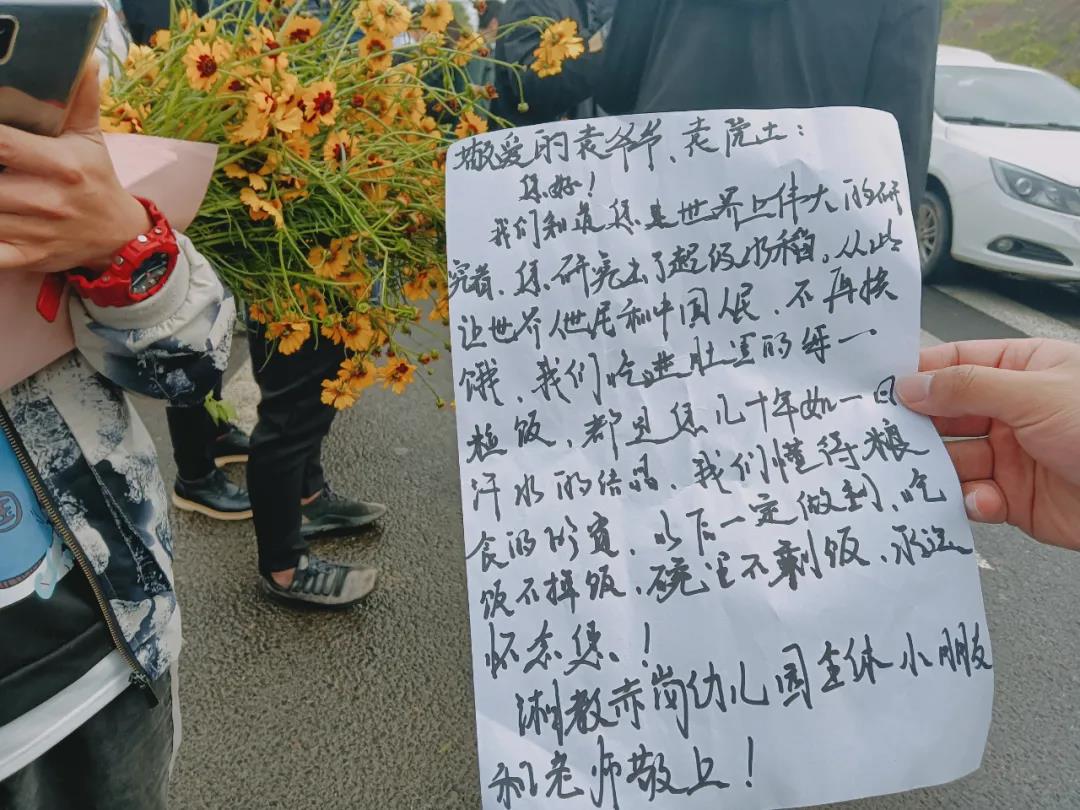 敬爱的袁爷爷、袁院士:
您好!
我们知道您是世界上伟大的研
究者、您研究出了超级水稻,从此
让世界人民和中国人民,不再挨
饿,我们吃进肚里的每一
粒饭,都是您几十年如一日
汗水的结晶,我们懂得粮
食的珍贵,以后一定做到,吃
饭不掉饭,碗里不剩饭,永远
怀念您!
湘教赤岗幼儿园全体小朋友
和老师敬上!